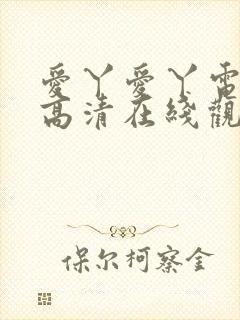 愛丫愛丫電
高清在綫觀
保尔柯察金